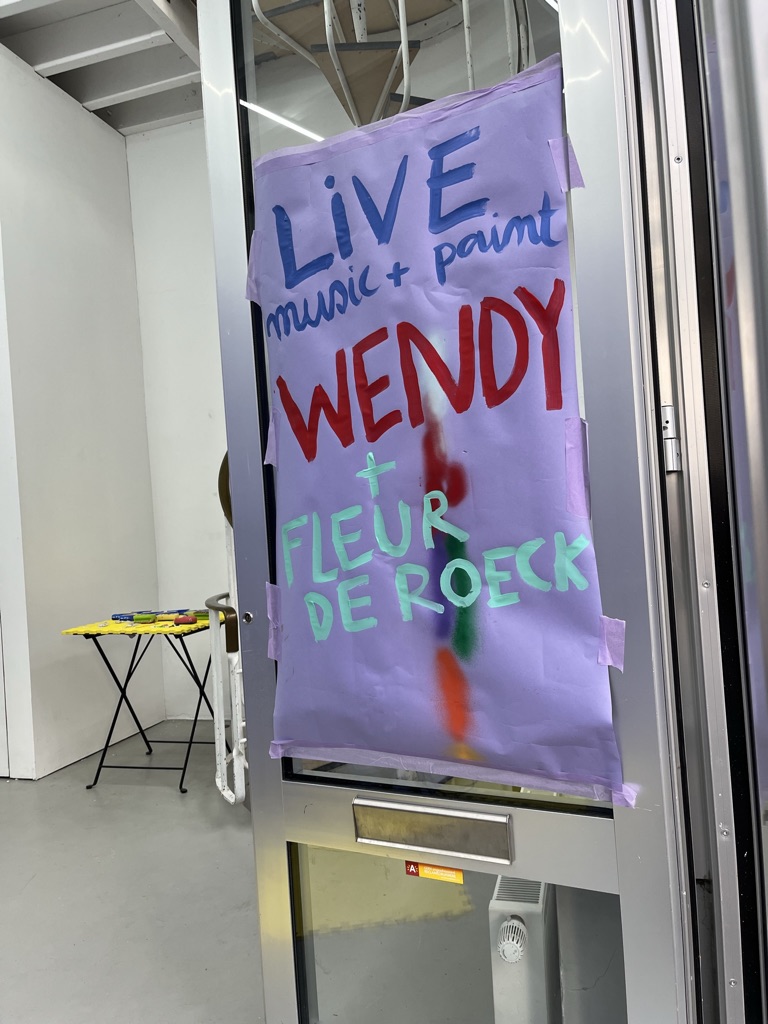 LiVE
music + paint
WENDY
+
FLEUR
DE ROECK